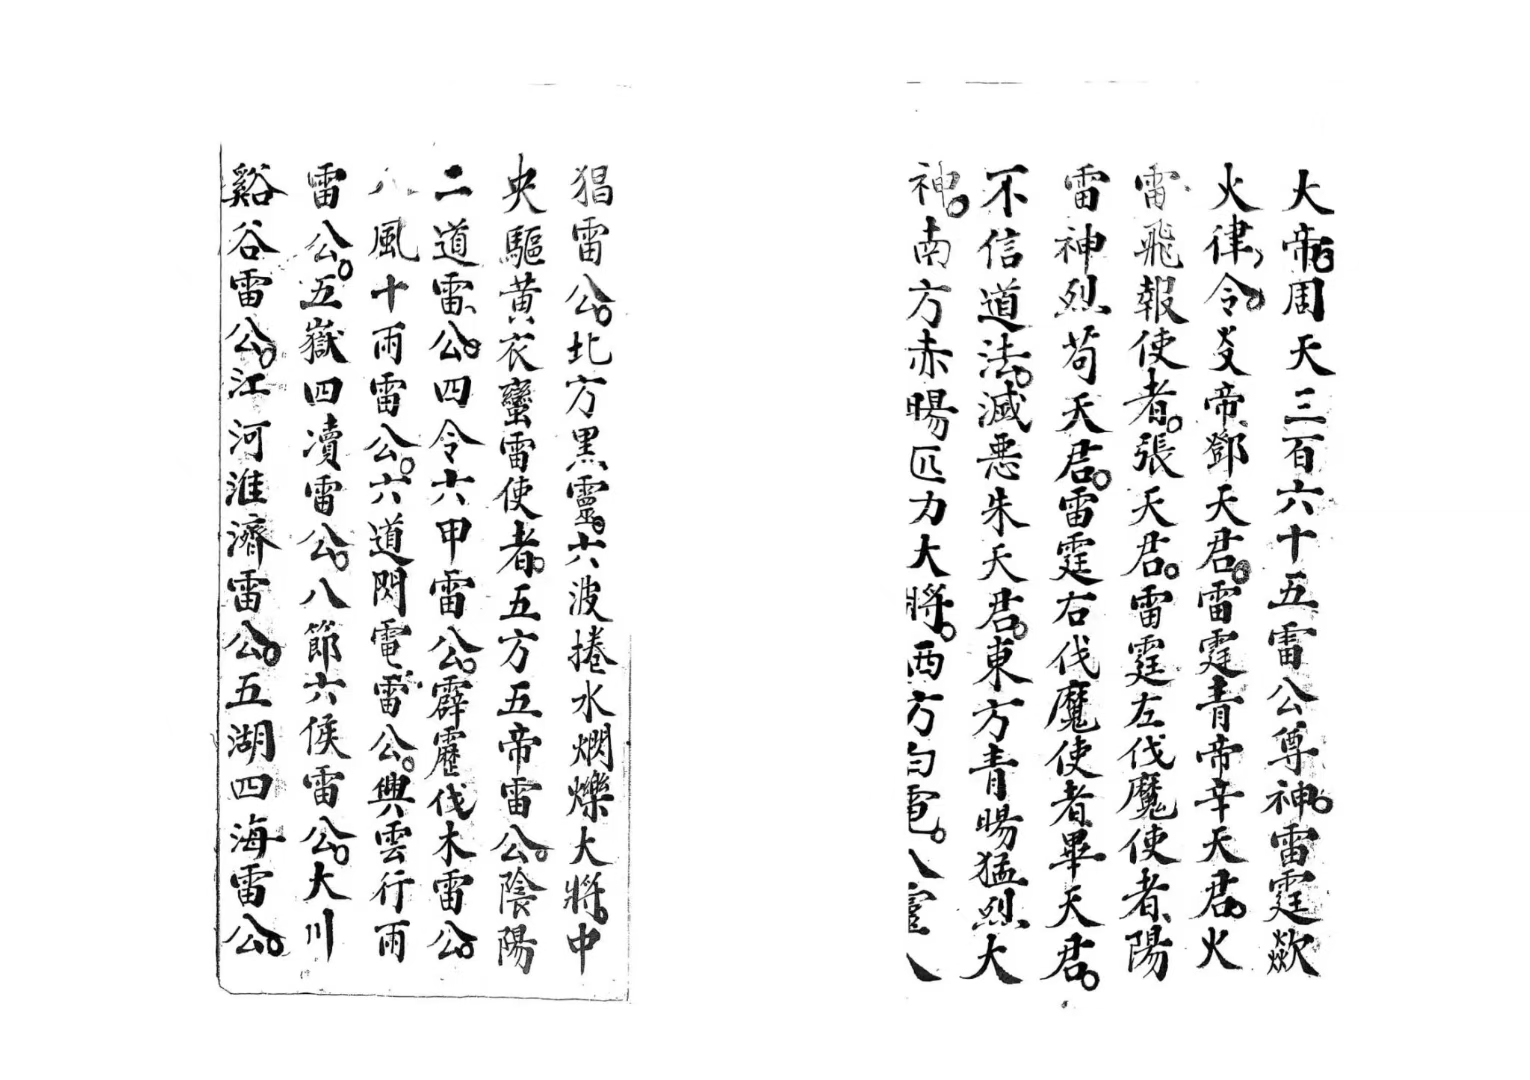 大帝。周天三百六十五雷公尊神。雷霆欻
火律令炎帝鄧天君。雷霆青帝辛天君。火
雷飛報使者。張天君。雷霆左伐魔使者陽
雷神烈苟天君。雷霆右伐魔使者畢天君。
不信道法。滅惡朱天君。東方青暘猛烈大
神。南方赤暘匹力大將。西方白電。八靈八
猖雷公。北方黑靈。六波捲水爓爍大將。中
央驅黃衣蠻雷使者。五方五帝雷公。陰陽
二道雷公。四令六甲雷公。霹靂伐木雷公。
八風十雨雷公。六道閃電雷公。興雲行雨
雷公。五嶽四凟雷公。八節六侯雷公。大川
谿谷雷公。江河淮濟雷公。五湖四海雷公。